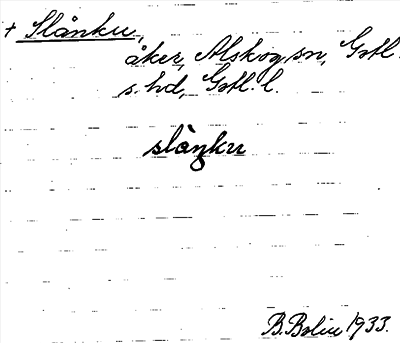 + Slånku,
åker, Alskog sn, Gotl.
s. hd, Gotl. l.
slàŋku
B. Bolin 1933.